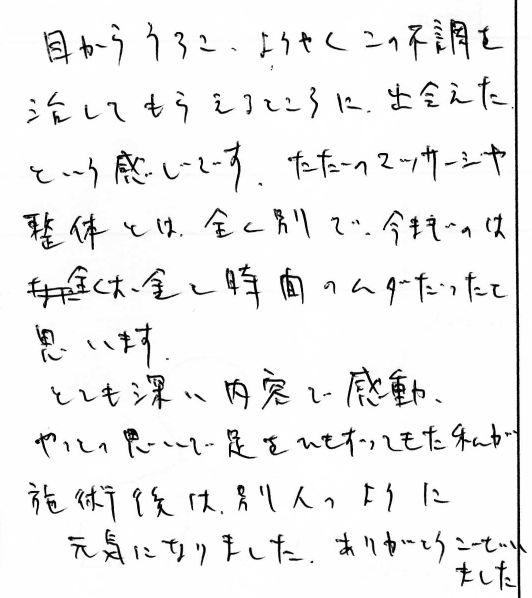 目からうろこ、ようやくこの不調を
治してもらえるところに、出会えた
という感じです。ただのマッサージや
整体とは、全く別で、今までのは
全くお金と時間のムダだったと
思います。
とても深い内容で感動、
やっとの思いで足をひきずってきた私が
施術後は、別人のように
元気になりました。ありがとうございい
ました